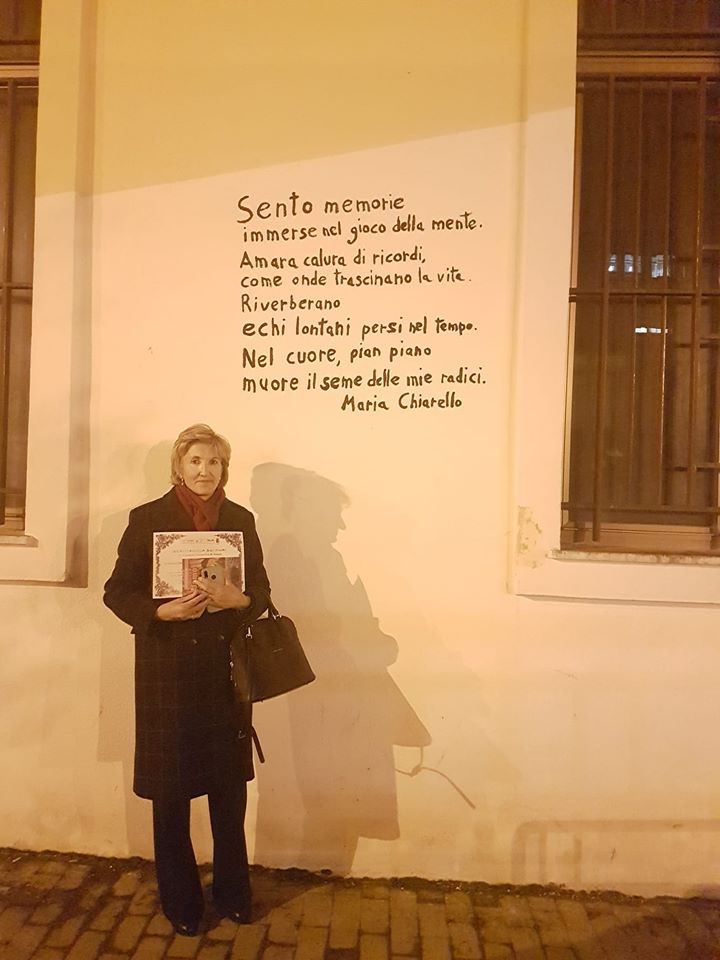 Sento memorie
immerse nel gioco della mente.
Amara calura di ricordi,
come onde trascinano la vita.
Riverberano
echi lontani persi nel tempo.
Nel cuore, pian piano
muore il seme delle mie radici.
Maria Chiarello